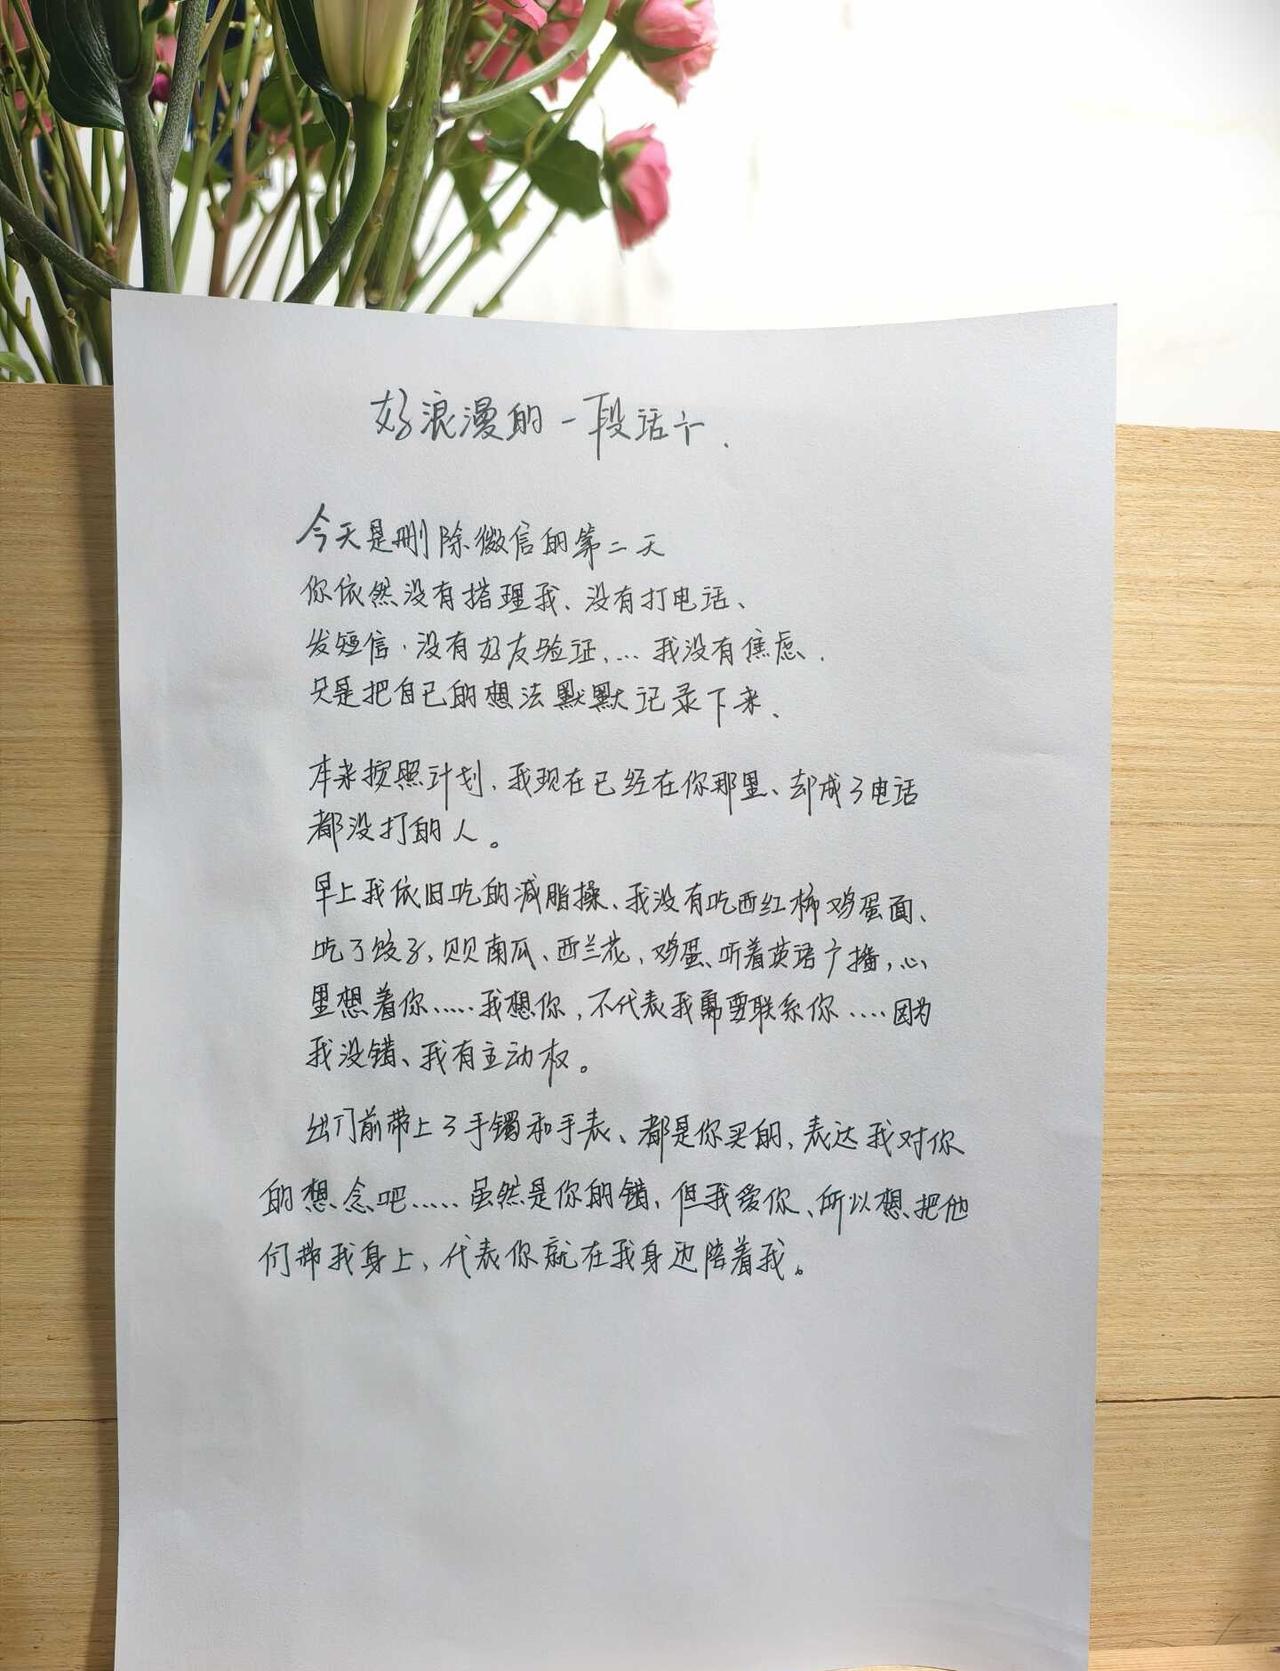 好浪漫的一段话个.
今天是删除微信的第二天
你依然没有搭理我、没有打电话、
发短信.没有好友验证、… 我没有焦虑.
只是把自己的想法默默记录下来、
本来按照计划、我现在已经在你那里、却成了电话
都没打的人。
早上我依旧吃的减脂操、我没有吃西红柿鸡蛋面、
吃了饺子,贝贝南瓜、西兰花,鸡蛋、听着英语广播,心
里想着你……我想你,不代表我需要联系你……因为
我没错、我有主动权。
出门前带上了手镯和手表、都是你买的,表达我对你
的想念吧……虽然是你的错,但我爱你、所以想把他
们带我身上,代表你就在我身边陪着我。